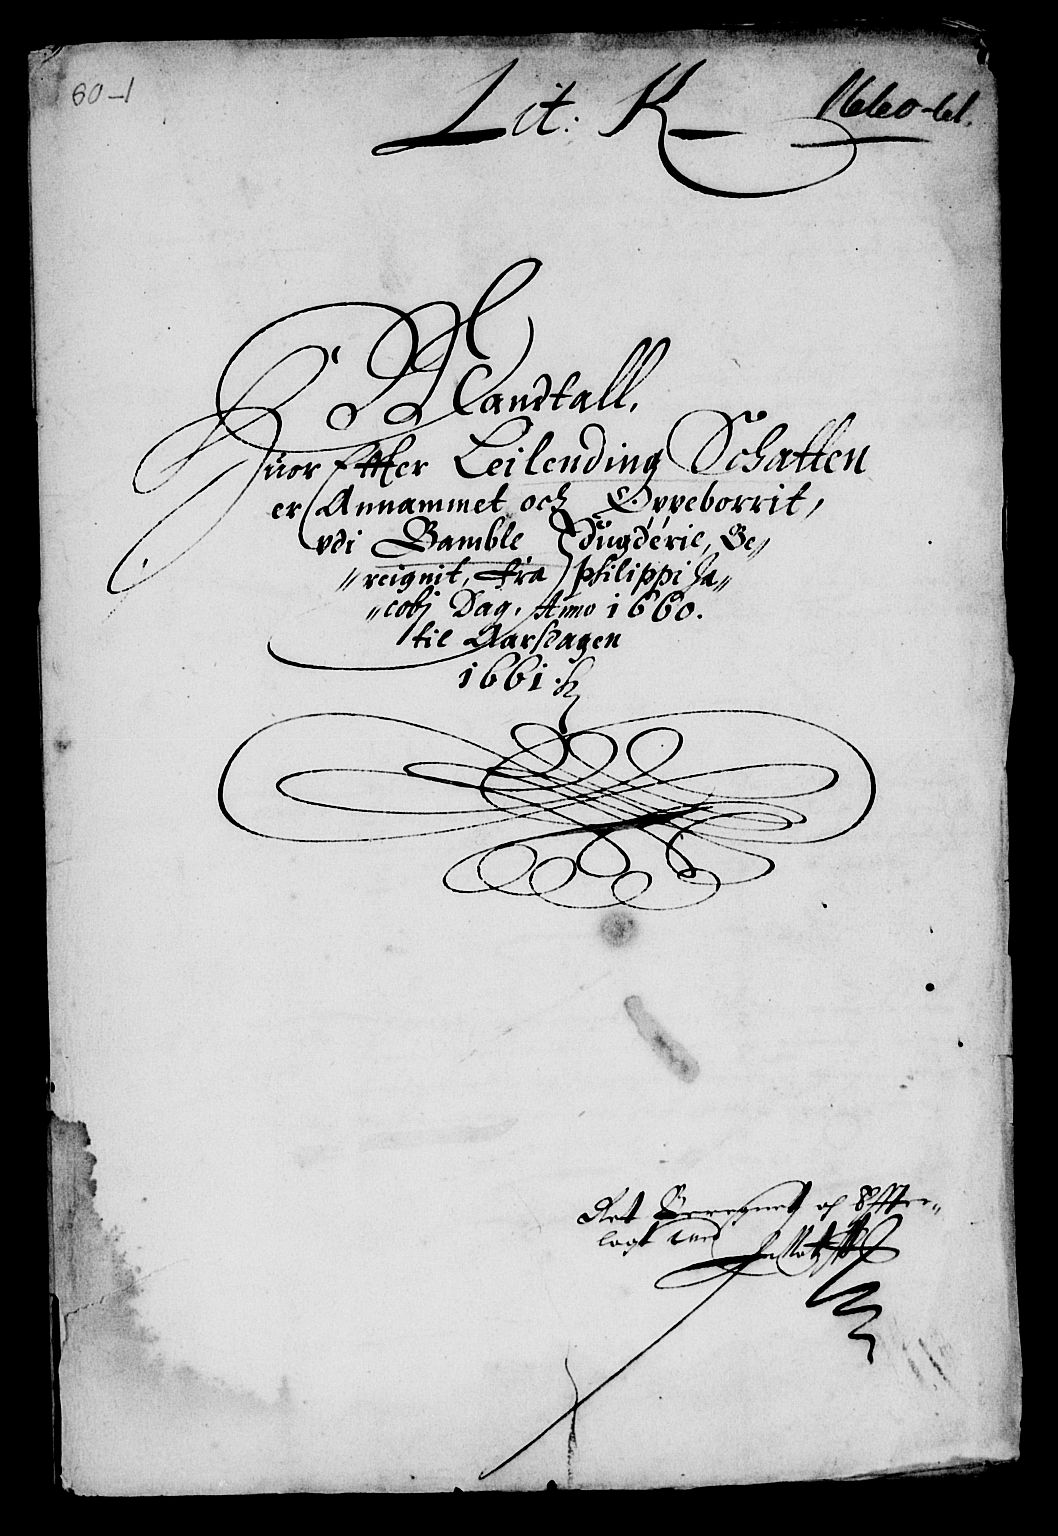 60-1
Lit: K
1660-61.
Mandtall,
Huor Effter Leilending Schatten
er Annammet och Oppeborrit,
vdi Bamble Fougderie, Be〃
〃reignit, fra Philippi Ja〃
〃cobj Dag, Anno 1660.
til Aarsdagen
1661
Ret Beregnet och Offuer〃
lagt